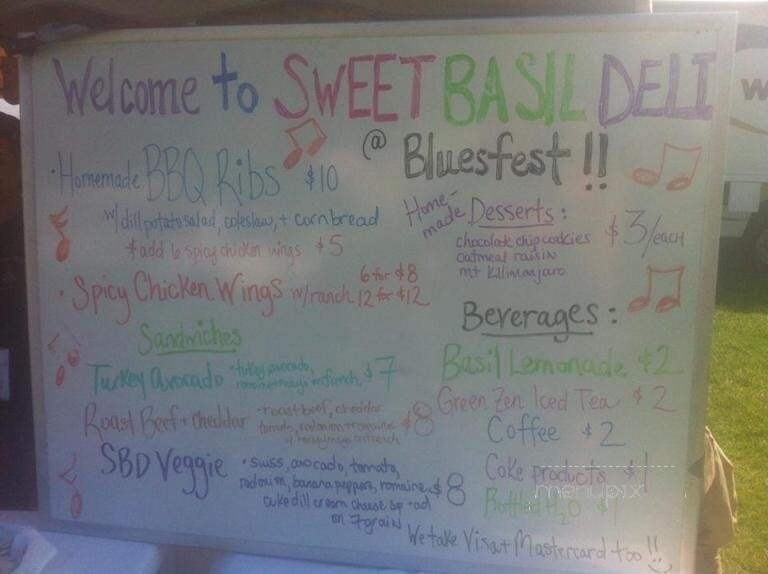 Welcome to SWEET BASIL DELI
@ Bluesfest !!
• Homemade BBQ Ribs $10
w/ dill potato salad, coleslaw, + cornbread
* add 6 spicy chicken wings $5
• Spicy Chicken Wings w/ranch 6 for $8
12 for $12
Sandwiches
Turkey Avocado • turkey, avocado, $7
romaine + mayo on french
Roast Beef + cheddar • roast beef, cheddar $8
tomato, red onion + romaine
mayo on french
SBD Veggie • swiss, avocado, tomato, $8
red onion, banana peppers, romaine
cuke dill cream cheese
on 7 grain
Home-made Desserts: $3/each
chocolate chip cookies
oatmeal raisin
mt Kilimanjaro
Beverages:
Basil Lemonade $2
Green Zen Iced Tea $2
Coffee $2
Coke products $1
menupix
Bottled H2O $1
We take Visa + Mastercard too!!